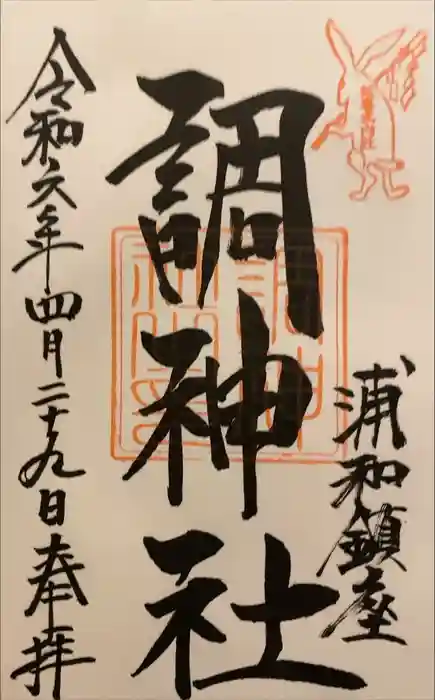 浦和鎮座
調神社
令和六年四月二十九日奉拝